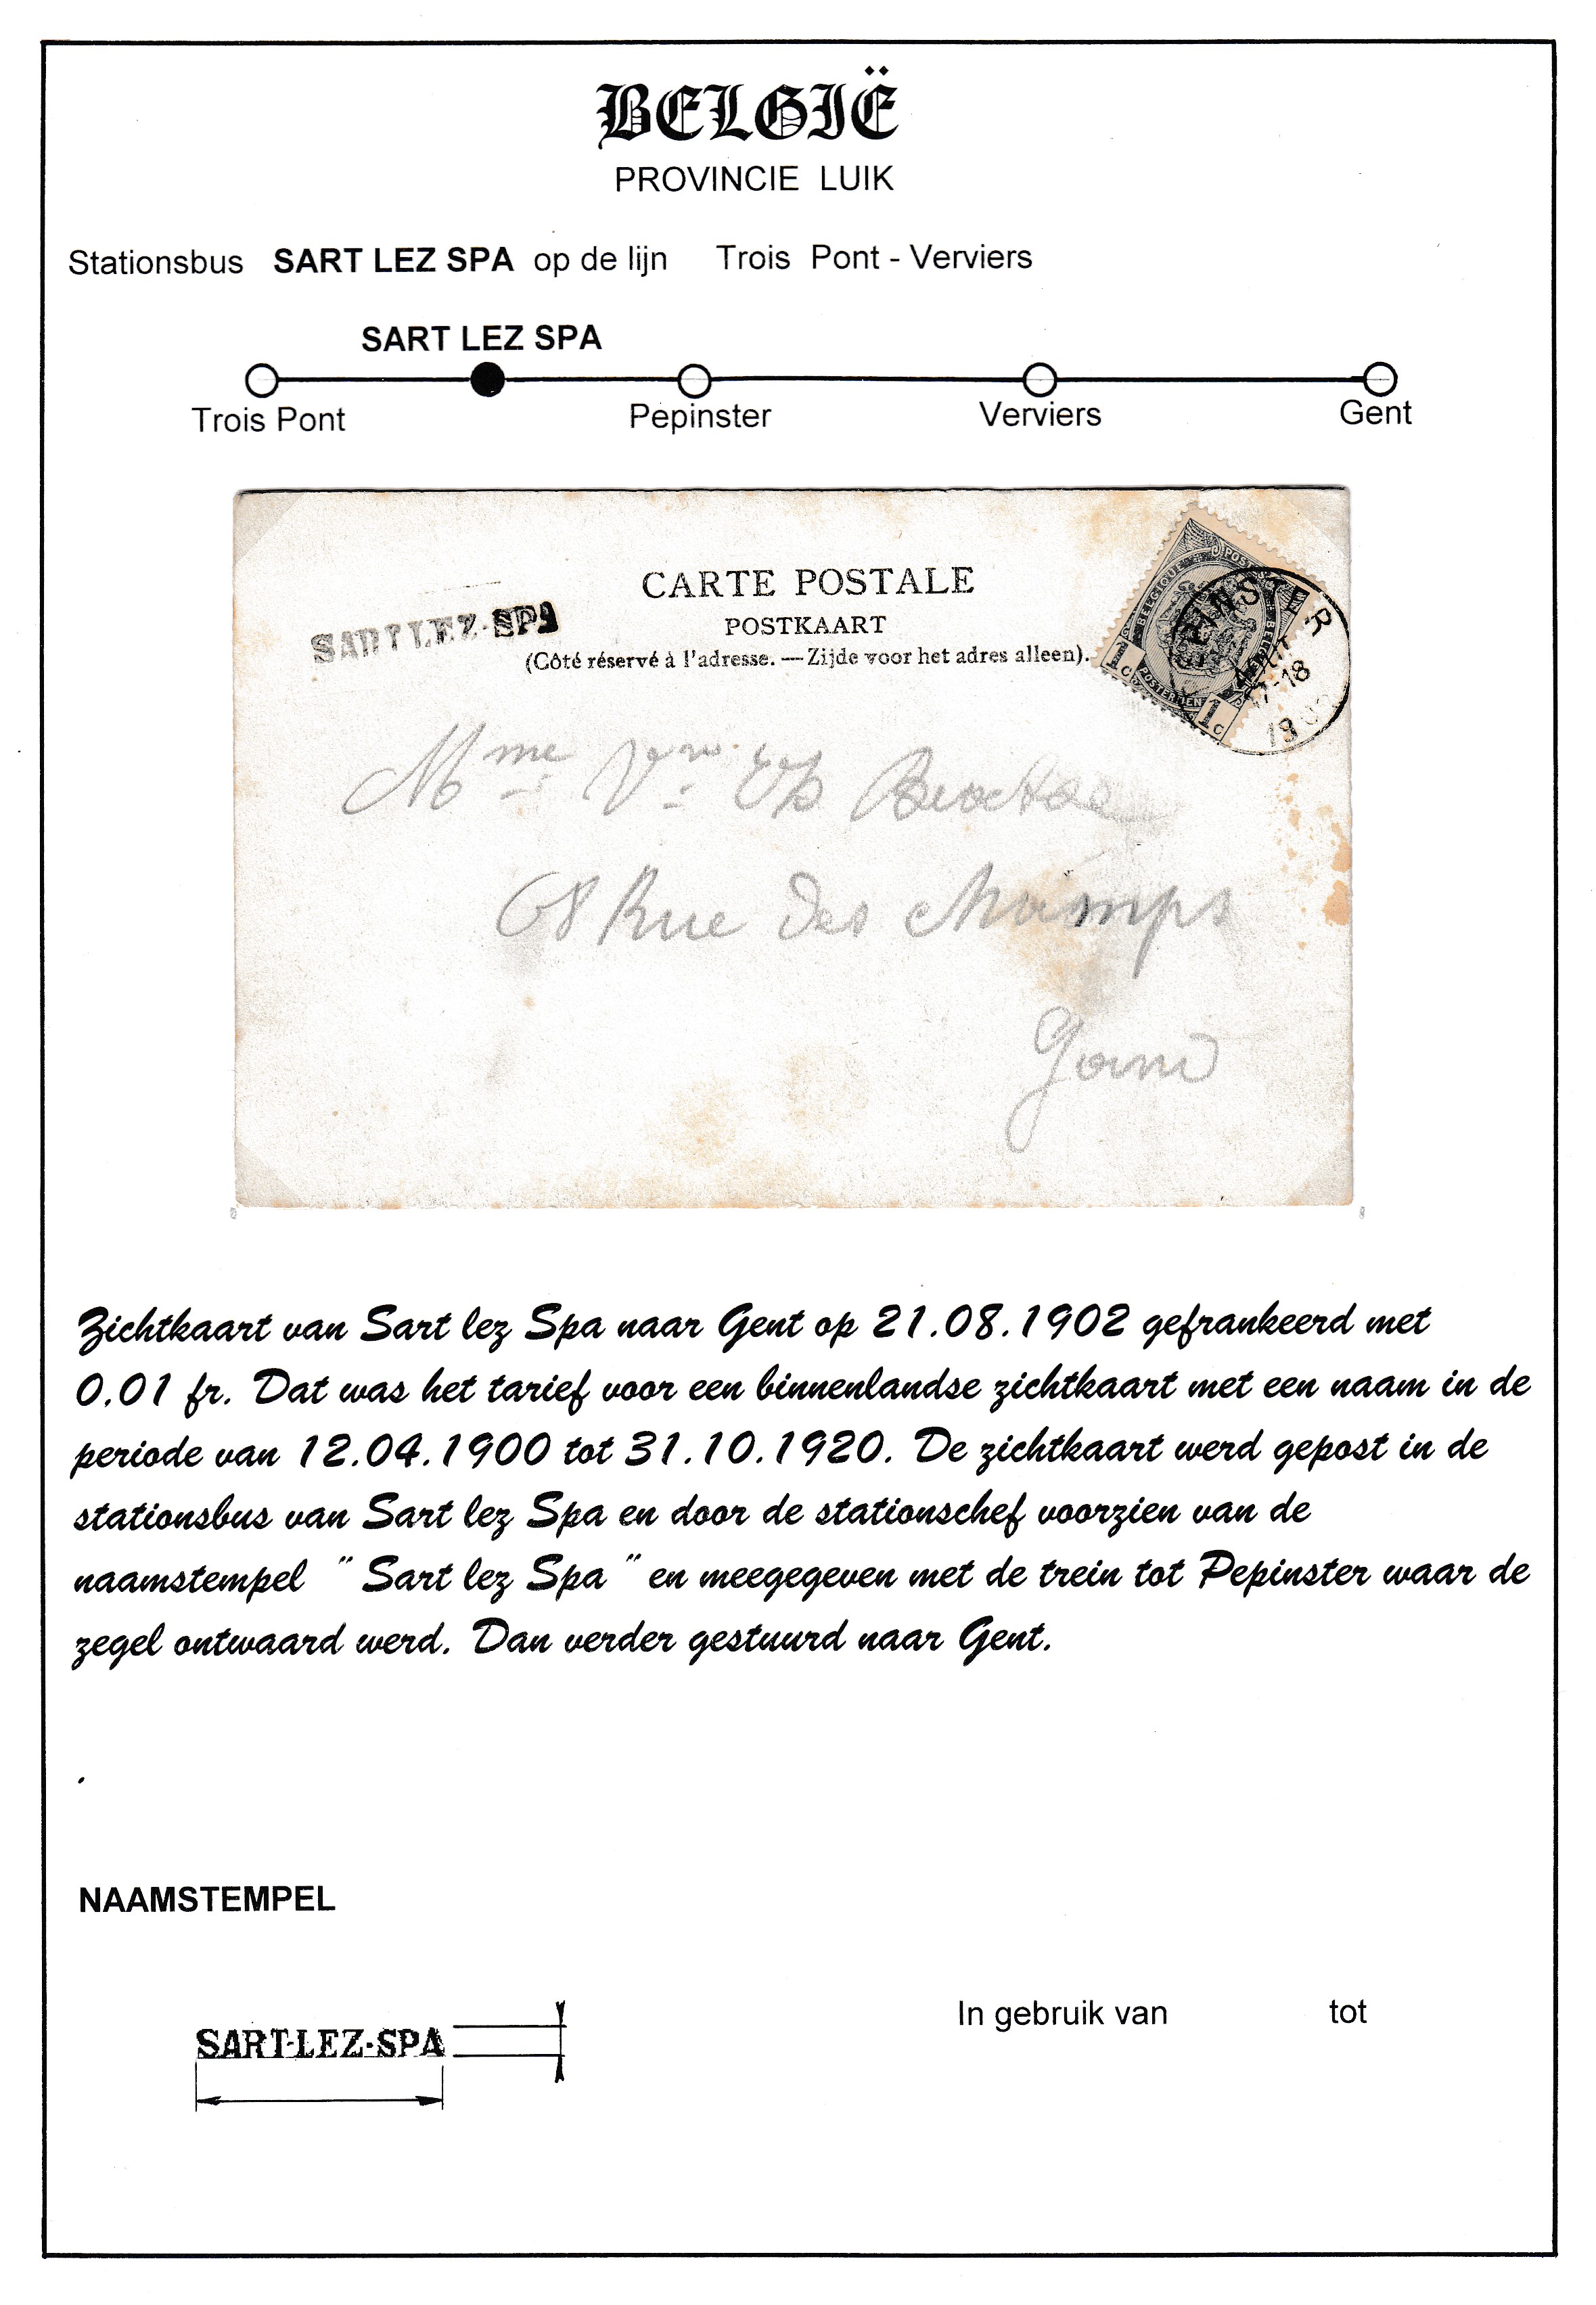 BELGIË
PROVINCIE LUIK
Stationsbus SART LEZ SPA op de lijn Trois Pont - Verviers
SART LEZ SPA
Trois Pont Pepinster Verviers Gent
CARTE POSTALE
POSTKAART
(Côté réservé à l'adresse. — Zijde voor het adres alleen).
SART LEZ-SPA
BELGIQUE POSTES BELGIË POSTERIJEN
1c 1c
17-18
Mme Vve
68 Rue des Champs
Gand
Zichtkaart van Sart lez Spa naar Gent op 21.08.1902 gefrankeerd met
0.01 fr. Dat was het tarief voor een binnenlandse zichtkaart met een naam in de
periode van 12.04.1900 tot 31.10.1920. De zichtkaart werd gepost in de
stationsbus van Sart lez Spa en door de stationschef voorzien van de
naamstempel " Sart lez Spa " en meegegeven met de trein tot Pepinster waar de
zegel ontwaard werd. Dan verder gestuurd naar Gent.
.
NAAMSTEMPEL
In gebruik van tot
SART-LEZ-SPA